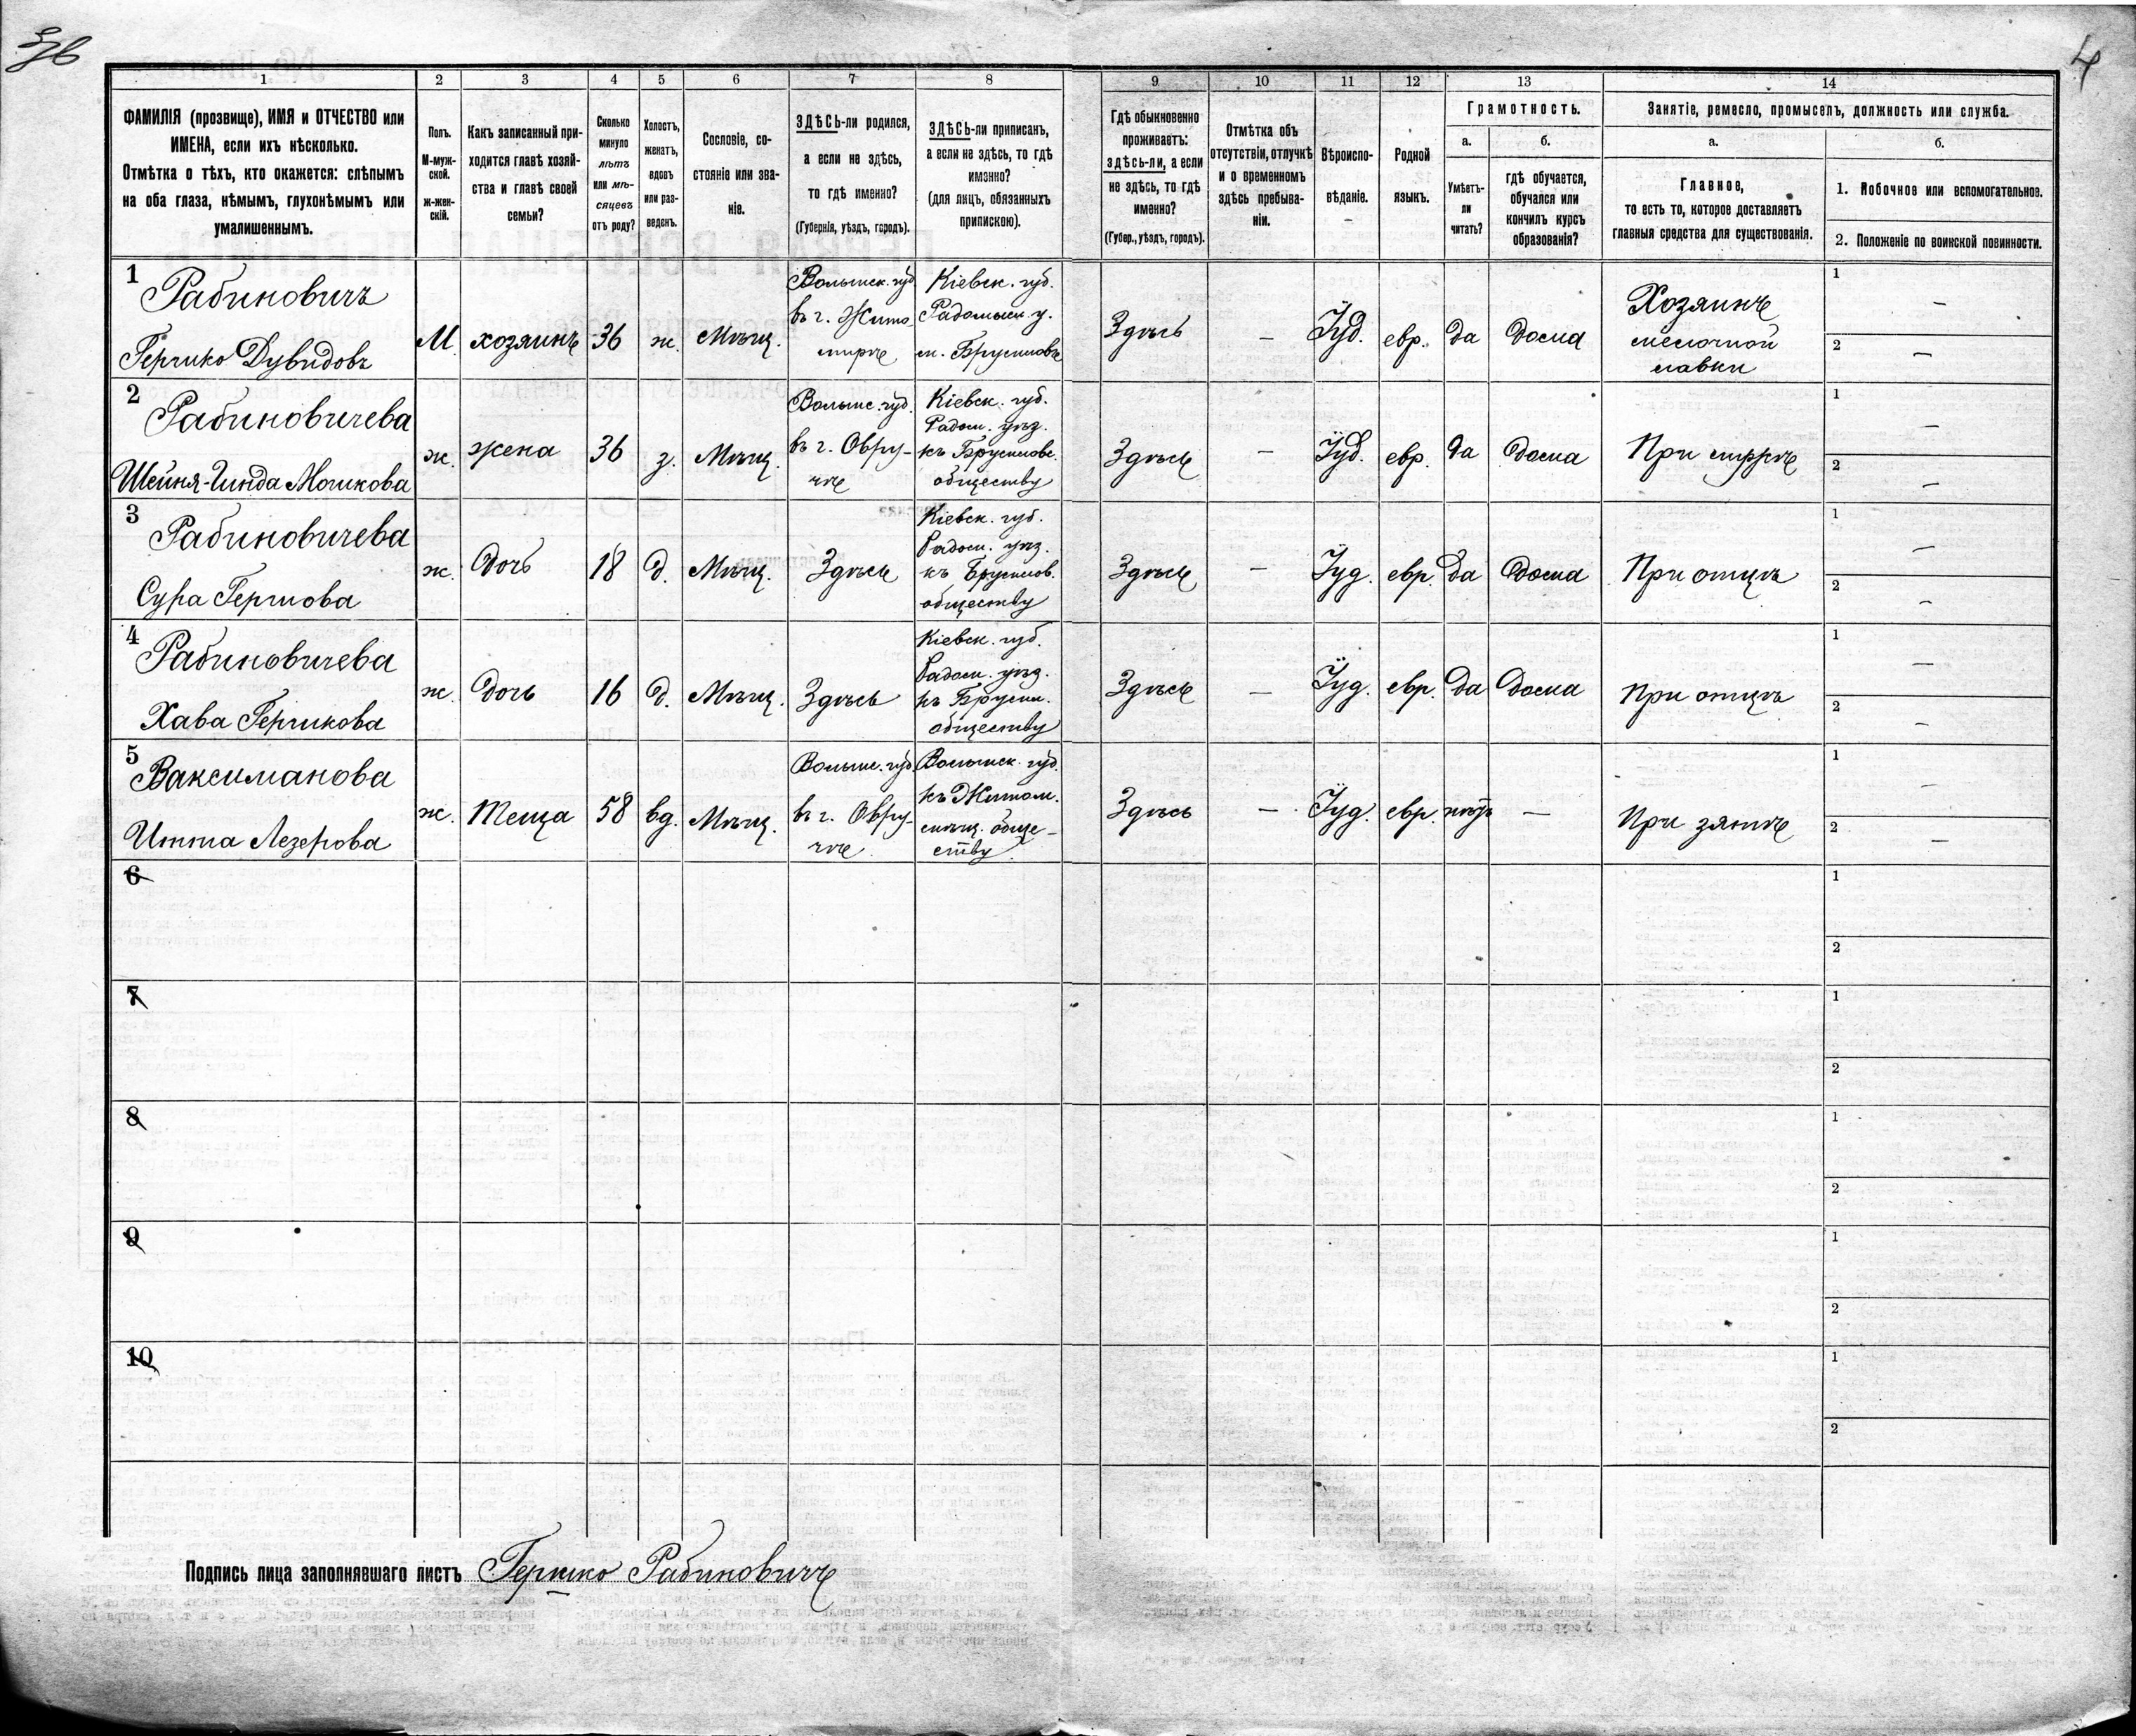 3/6
4
1 2 3 4 5 6 7 8 9 10 11 12 13 14
ФАМИЛІЯ (прозвище), ИМЯ и ОТЧЕСТВО или
ИМЕНА, если ихъ нѣсколько.
Отмѣтка о тѣхъ, кто окажется: слѣпымъ
на оба глаза, нѣмымъ, глухонѣмымъ или
умалишеннымъ.
Полъ.
М-муж-
ской.
ж-жен-
скій.
Какъ записанный при-
ходится главѣ хозяй-
ства и главѣ своей
семьи?
Сколько
минуло
лѣтъ
или мѣ-
сяцевъ
отъ роду?
Холостъ,
женатъ,
вдовъ
или раз-
веденъ.
Сословіе, со-
стояніе или зва-
ніе.
ЗДѢСЬ-ли родился,
а если не здѣсь,
то гдѣ именно?
(Губернія, уѣздъ, городъ).
ЗДѢСЬ-ли приписанъ,
а если не здѣсь, то гдѣ
именно?
(для лицъ, обязанныхъ
припискою).
Гдѣ обыкновенно
проживаетъ:
здѣсь-ли, а если
не здѣсь, то гдѣ
именно?
(Губер., уѣздъ, городъ).
Отмѣтка объ
отсутствіи, отлучкѣ
и о временномъ
здѣсь пребыва-
ніи.
Вѣроиспо-
вѣданіе.
Родной
языкъ.
Грамотность.
а.
Умѣетъ-
ли
читать?
б.
гдѣ обучается,
обучался или
кончилъ курсъ
образованія?
Занятіе, ремесло, промыселъ, должность или служба.
а.
Главное,
то есть то, которое доставляетъ
главныя средства для существованія.
б.
1. Побочное или вспомогательное.
2. Положеніе по воинской повинности.
1
Рабиновичъ
Гершко Дувидовъ
М.
хозяинъ
36
ж.
Мѣщ.
Волынск. губ.
въ г. Жито-
мирѣ
Кіевск. губ.
Радомысл. у.
м. Брусиловъ
Здѣсь
—
Іуд.
евр.
да
дома
Хозяинъ
мелочной
лавки
1 —
2 —
2
Рабиновичева
Шейня-Гинда Мошкова
ж.
жена
36
з.
Мѣщ.
Волынс. губ.
въ г. Овру-
чѣ
Кіевск. губ.
Радом. уѣз.
къ Брусилов.
обществу
Здѣсь
—
Іуд.
евр.
да
дома
При мужѣ
1 —
2 —
3
Рабиновичева
Сура Гершова
ж.
дочь
18
д.
Мѣщ.
Здѣсь
Кіевск. губ.
Радом. уѣз.
къ Брусилов.
обществу
Здѣсь
—
Іуд.
евр.
да
дома
При отцѣ
1 —
2 —
4
Рабиновичева
Хава Гершкова
ж.
дочь
16
д.
Мѣщ.
Здѣсь
Кіевск. губ.
Радом. уѣз.
къ Брусил.
обществу
Здѣсь
—
Іуд.
евр.
да
дома
При отцѣ
1 —
2 —
5
Ваксманова
Итта Лезерова
ж.
теща
58
вд.
Мѣщ.
Волынс. губ.
въ г. Овру-
чѣ
Волынск. губ.
къ Житом.
мѣщ. обще-
ству
Здѣсь
—
Іуд.
евр.
нѣтъ
—
При зятѣ
1 —
2 —
6
1
2
7
1
2
8
1
2
9
1
2
10
1
2
Подпись лица заполнявшаго листъ Гершко Рабиновичъ